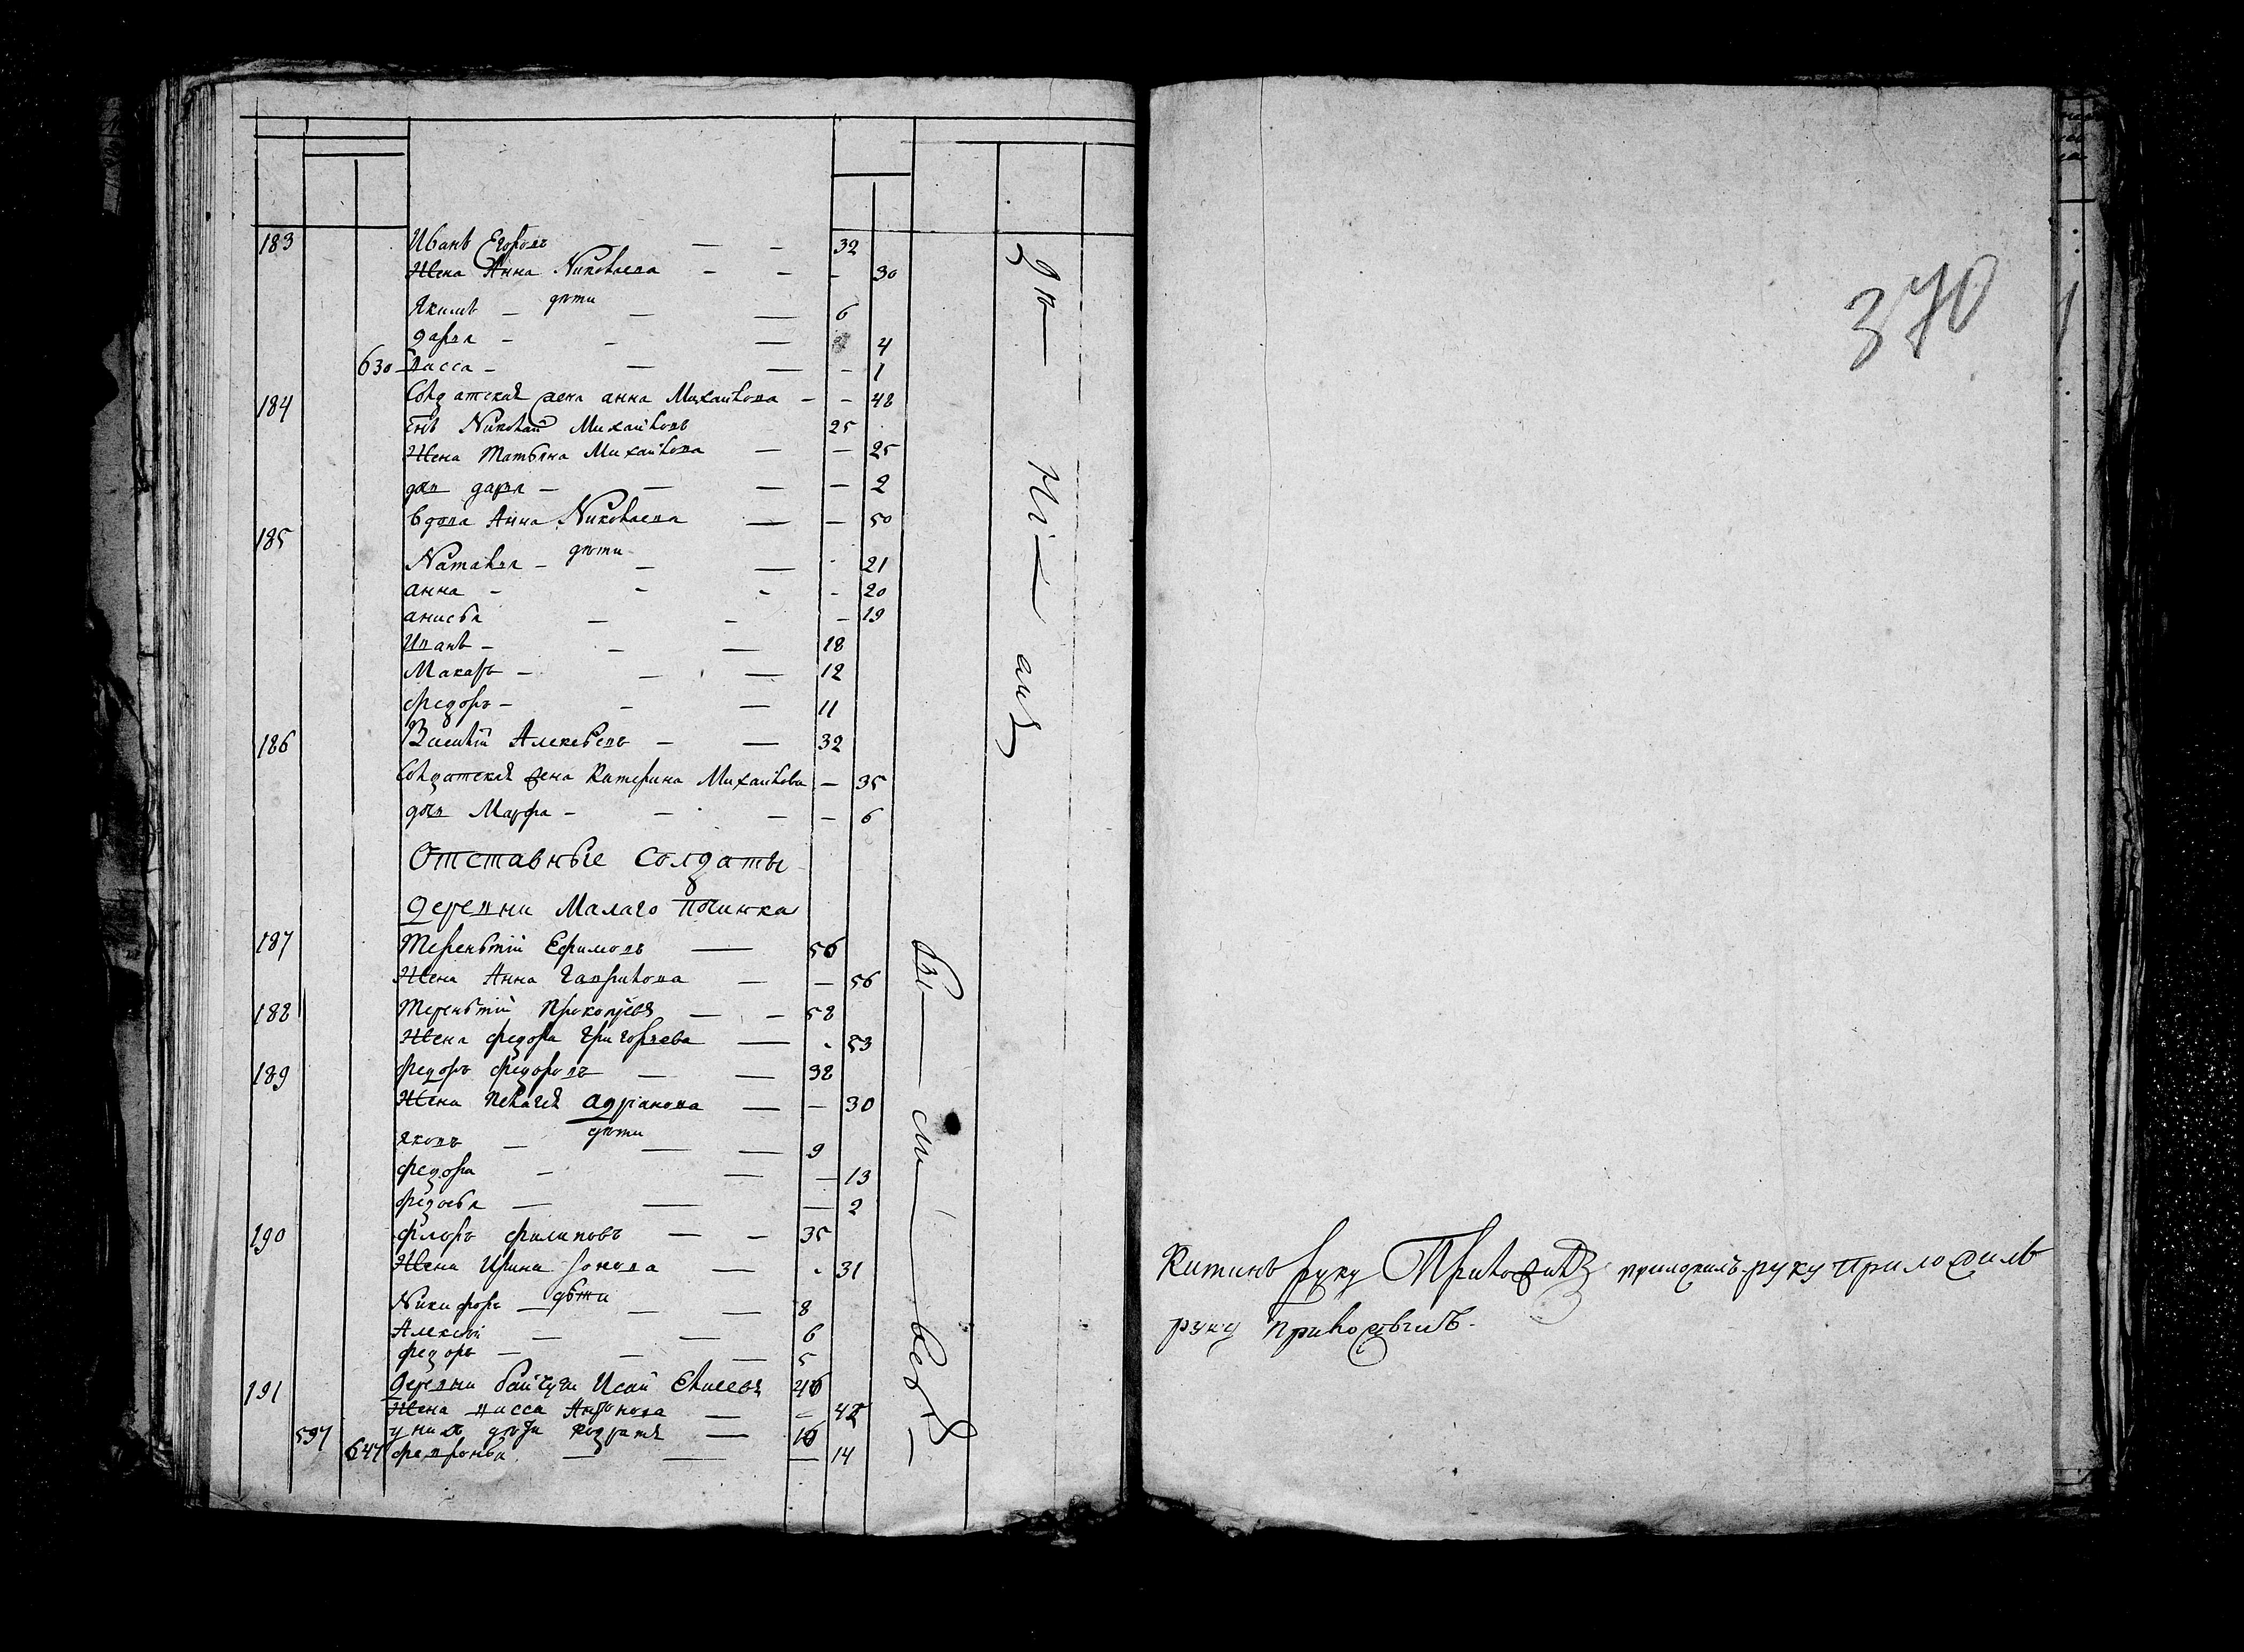 183 Иванъ Егоровъ — - 32
Жена Анна Николаева - - - 30
дѣти
Якимъ - — — 6
дарья - - — 4
630 Васса - — — - 1
184 Солдатская жена анна Михайлова - - 48
сынъ Николай Михайловъ 25
Жена Татьяна Михайлова — — 25
дочь дарья — — — — 2
185 вдова Анна Николаева — — 50
дѣти
Наталья - — — - 21
анна - - - - 20
анисья — - — 19
Иванъ - — — 18
Макаръ - — — 12
федоръ - - — 11
186 Василій Алексѣевъ - — 32
Солдатская жена Катерина Михайлова — 35
дочь Марфа - — — — 6
Отставные солдаты
деревни Малаго Починка
187 Терентій Ефимовъ — 56
Жена Анна Гаврилова — — 56
188 Терентій Прокопіевъ — - 58
Жена федора Григорьева — - 53
189 федоръ федоровъ — — 38
Жена Пелагея Адріанова — — 30
дѣти
яковъ — — — 9
федора - — — 13
федосья — — — 2
190 флоръ филиповъ — - 35
Жена Ирина — - 31
дѣти
Никифоръ — — — 8
Алексѣй — — 6
федоръ — — — 5
191 деревни Исай Елисеевъ 46
Жена васса — - 42
597 у нихъ дѣти — 16
647 феврონья — — — 14
бы— ли — всѣ —
370
руку приложилъ руку приложилъ
руку